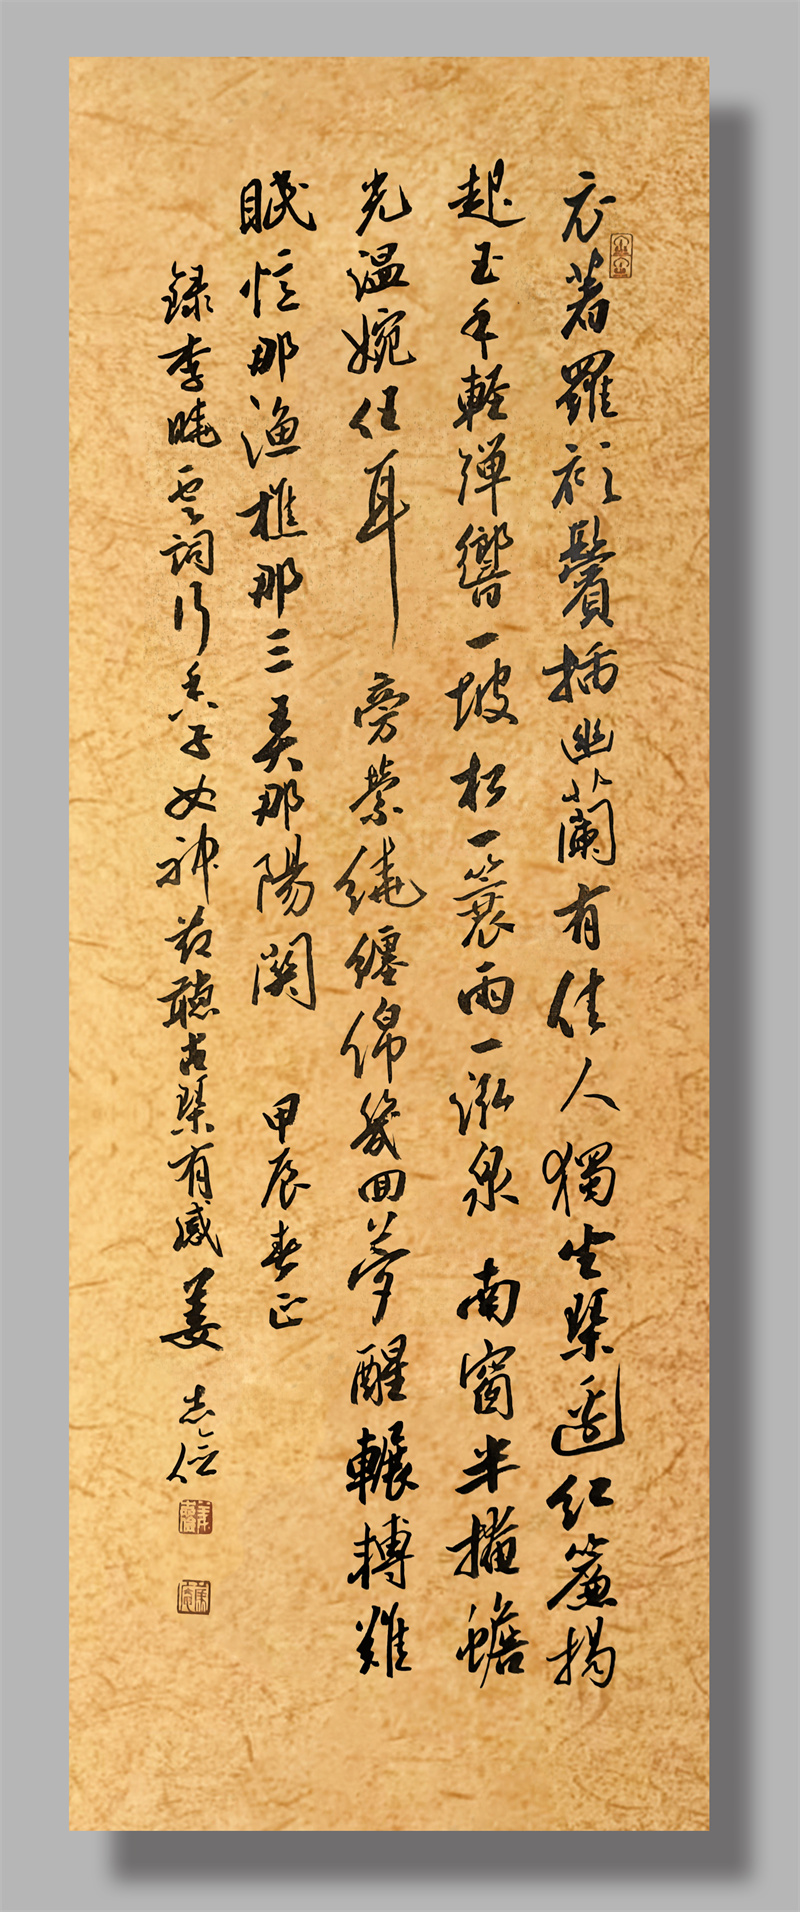 衣著羅衫鬢插幽蘭有佳人獨坐琴邊紅簾揭
起玉手輕彈響一坡松一蓑雨一泓泉 南窗半掩蟾
光溫婉任耳旁縈繞纏綿幾回夢醒輾轉難
眠憶那漁樵那三弄那陽關 甲辰春正
錄李曉雲詞行香子女神聽古琴有感 姜志